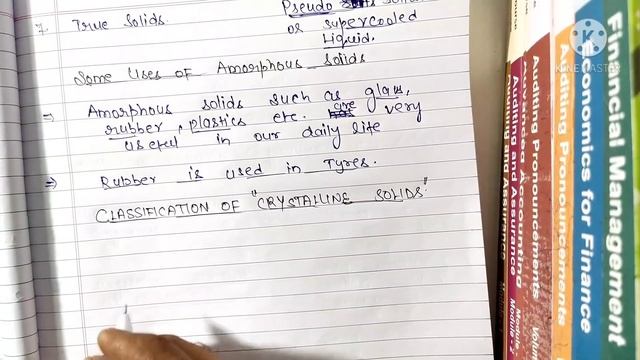 7. True Solids.
Pseudo
or supercooled
Liquid.
Some Uses of Amorphous solids
⇒ Amorphous solids such as glass,
rubber, plastics etc. are very
useful in our daily life
⇒ Rubber is used in Tyres.
CLASSIFICATION OF "CRYSTALLINE SOLIDS"
Auditing and Assurance
Module - 
Advanced Accounting
Module - 
Auditing Pronouncements
Volu
Auditing Pronouncements
Economics for Finance
Financial Management
KINEMASTER